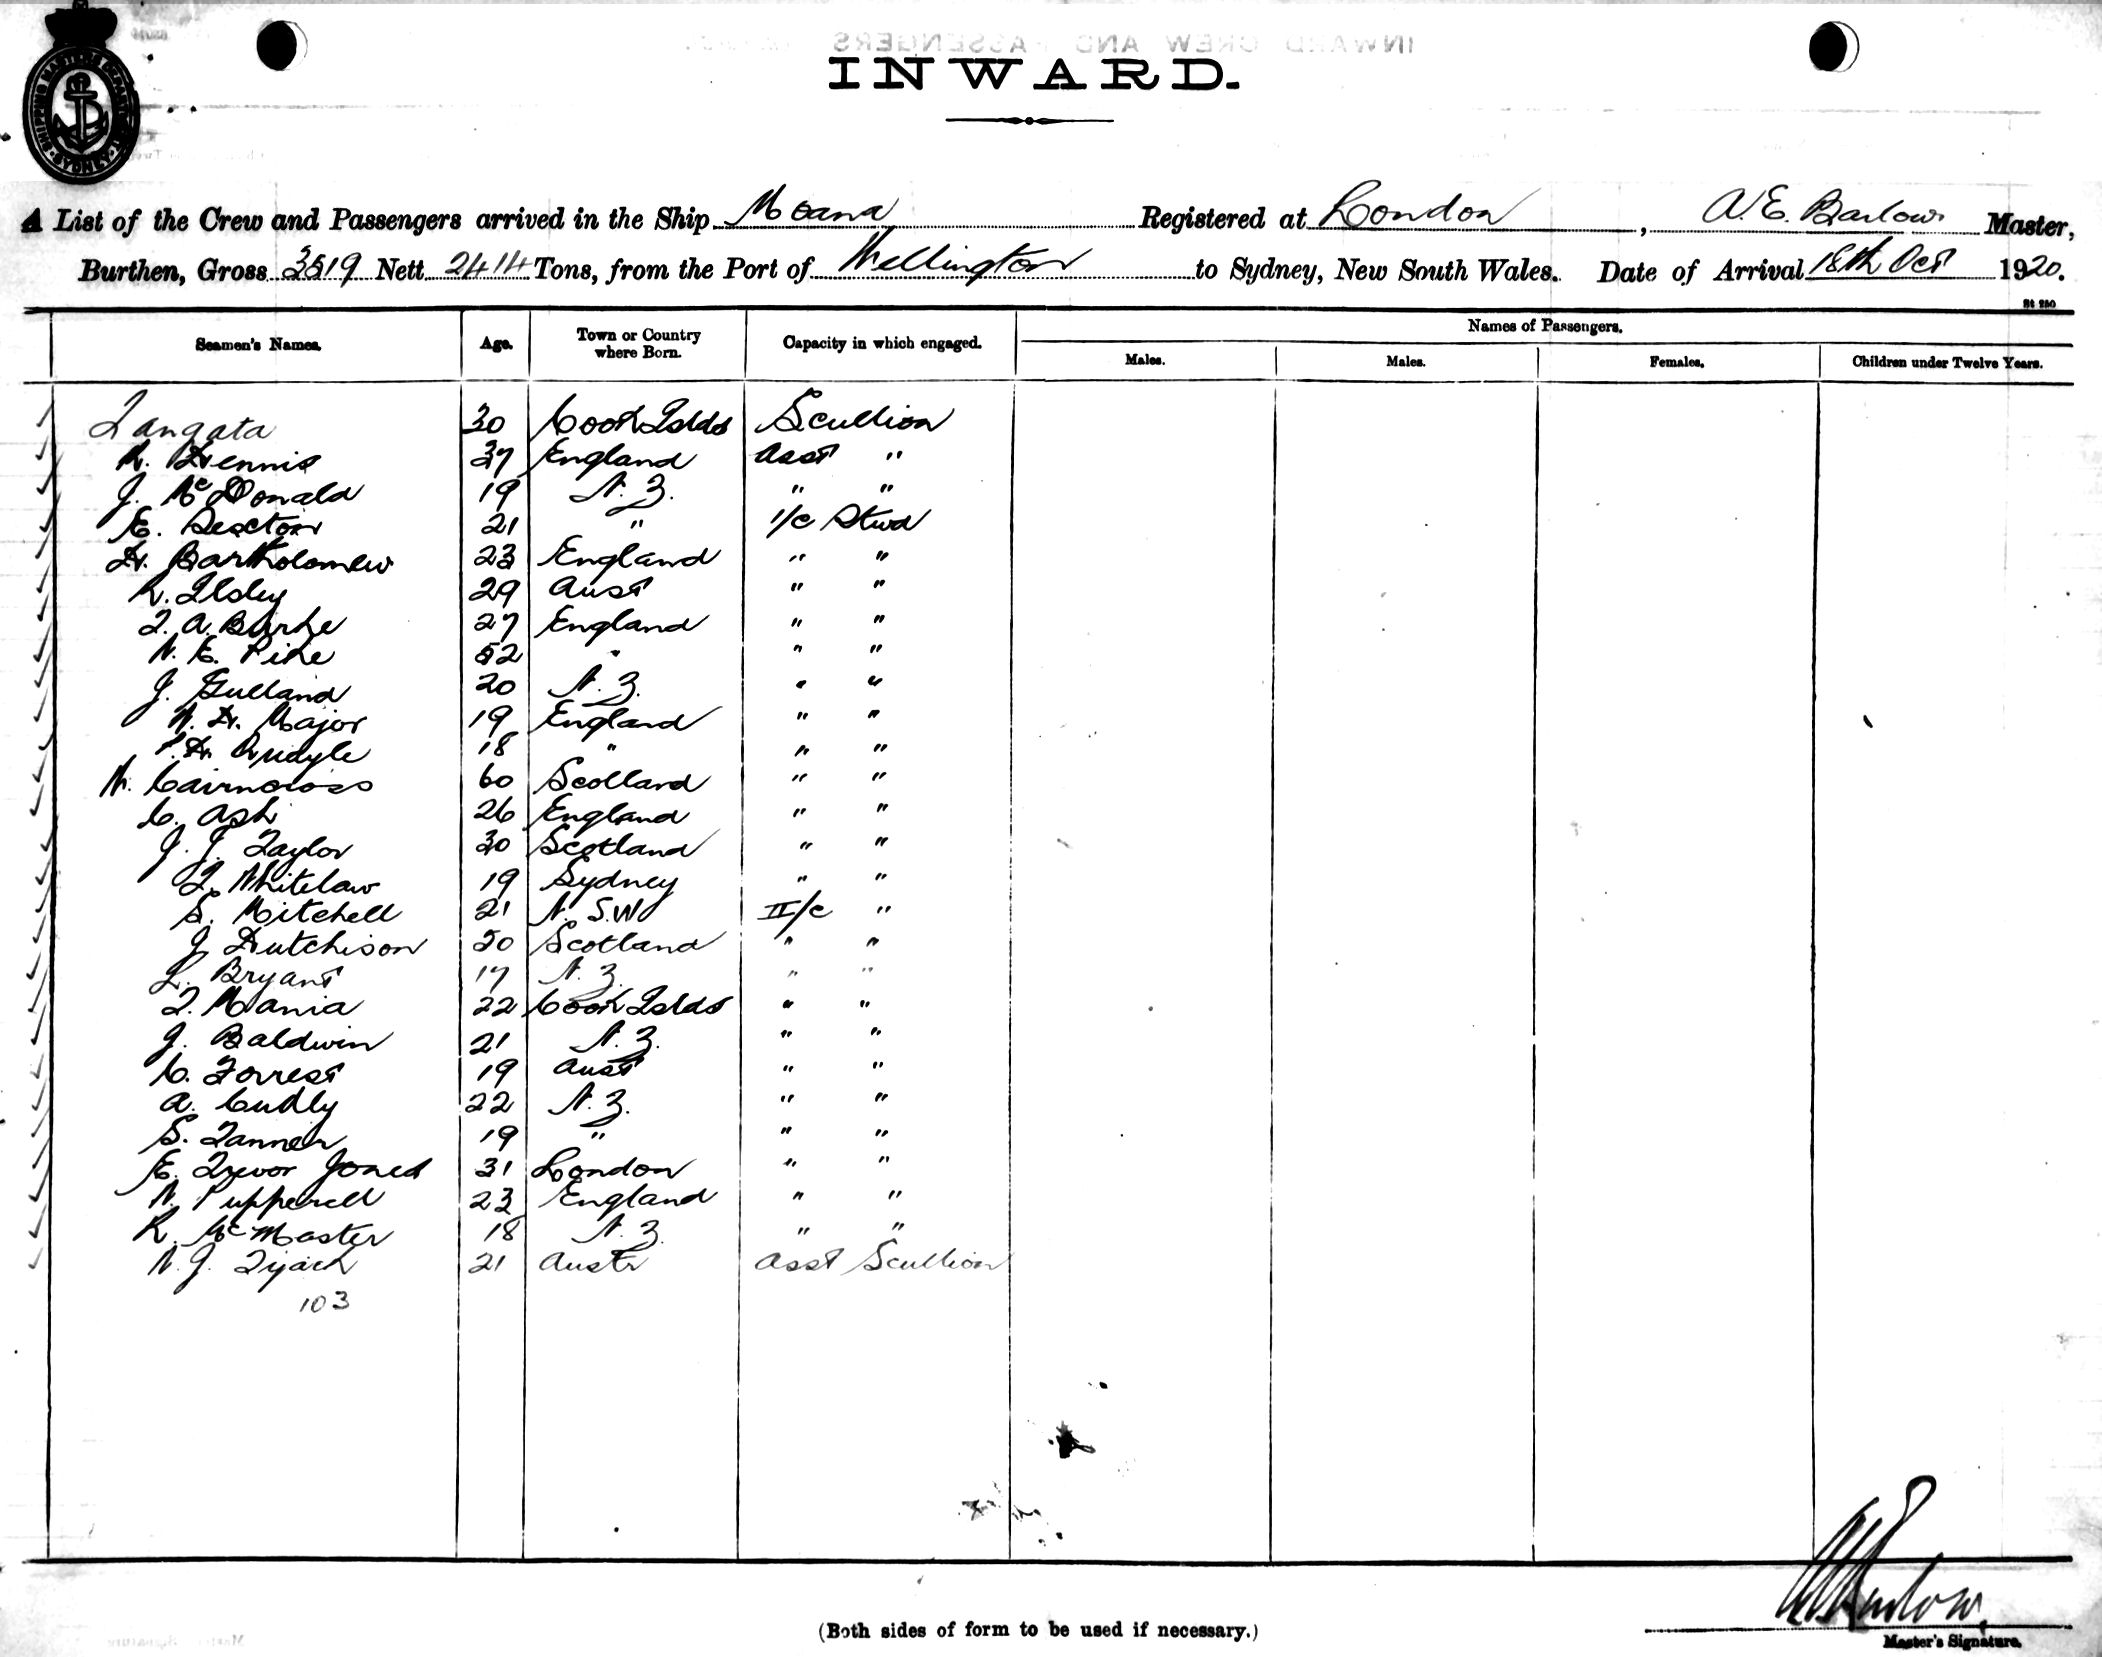 INWARD.
A List of the Crew and Passengers arrived in the Ship Moana Registered at London, A. E. Barlow Master,
Burthen, Gross 3519 Nett 2414 Tons, from the Port of Wellington to Sydney, New South Wales. Date of Arrival 18th Oct 1920.
St 250
Seamen's Names. Age. Town or Country where Born. Capacity in which engaged. Names of Passengers.
Males. Males. Females. Children under Twelve Years.
Tangata 30 Cook Islds Scullion
R. Dennis 37 England Asst "
J. McDonald 19 N.Z. " "
E. Sexton 21 " 1/c Stwd
H. Bartholomew 23 England " "
R. Ilsley 29 Aust " "
T. A. Burke 27 England " "
W. E. Pike 52 " " "
J. Gulland 20 N.Z. " "
W. H. Major 19 England " "
H. Quayle 18 " " "
W. Cairncross 60 Scotland " "
C. Ash 26 England " "
J. J. Taylor 30 Scotland " "
T. Whitelaw 19 Sydney " "
S. Mitchell 21 N.S.W II/c "
J. Hutchison 50 Scotland " "
L. Bryant 17 N.Z. " "
T. Mania 22 Cook Islds " "
J. Baldwin 21 N.Z. " "
C. Forrest 19 Aust " "
A. Cudly 22 N.Z. " "
S. Tanner 19 " " "
E. Trevor Jones 31 London " "
W. Pupperell 23 England " "
R. McMaster 18 N.Z. " "
W. J. Tyack 21 Austr Asst Scullion
103
(Both sides of form to be used if necessary.)
A E Barlow
Master's Signature.